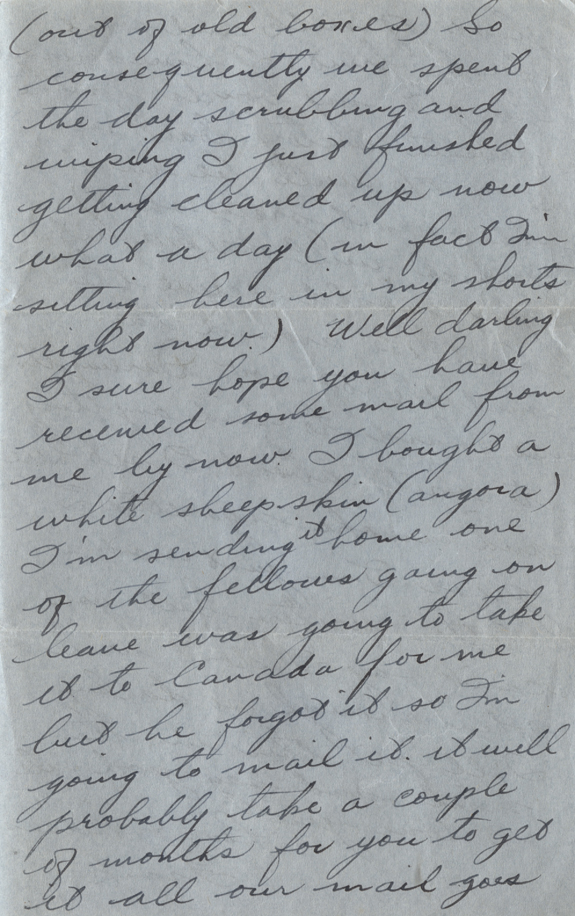 (out of old boxes) So
consequently we spent
the day scrubbing and
wiping I just finished
getting cleaned up now
what a day (in fact I'm
sitting here in my shorts
right now.) Well darling
I sure hope you have
received some mail from
me by now. I bought a
white sheepskin (angora)
I'm sending it home one
of the fellows going on
leave was going to take
it to Canada for me
but he forgot it so I'm
going to mail it. it will
probably take a couple
of months for you to get
it all our mail goes